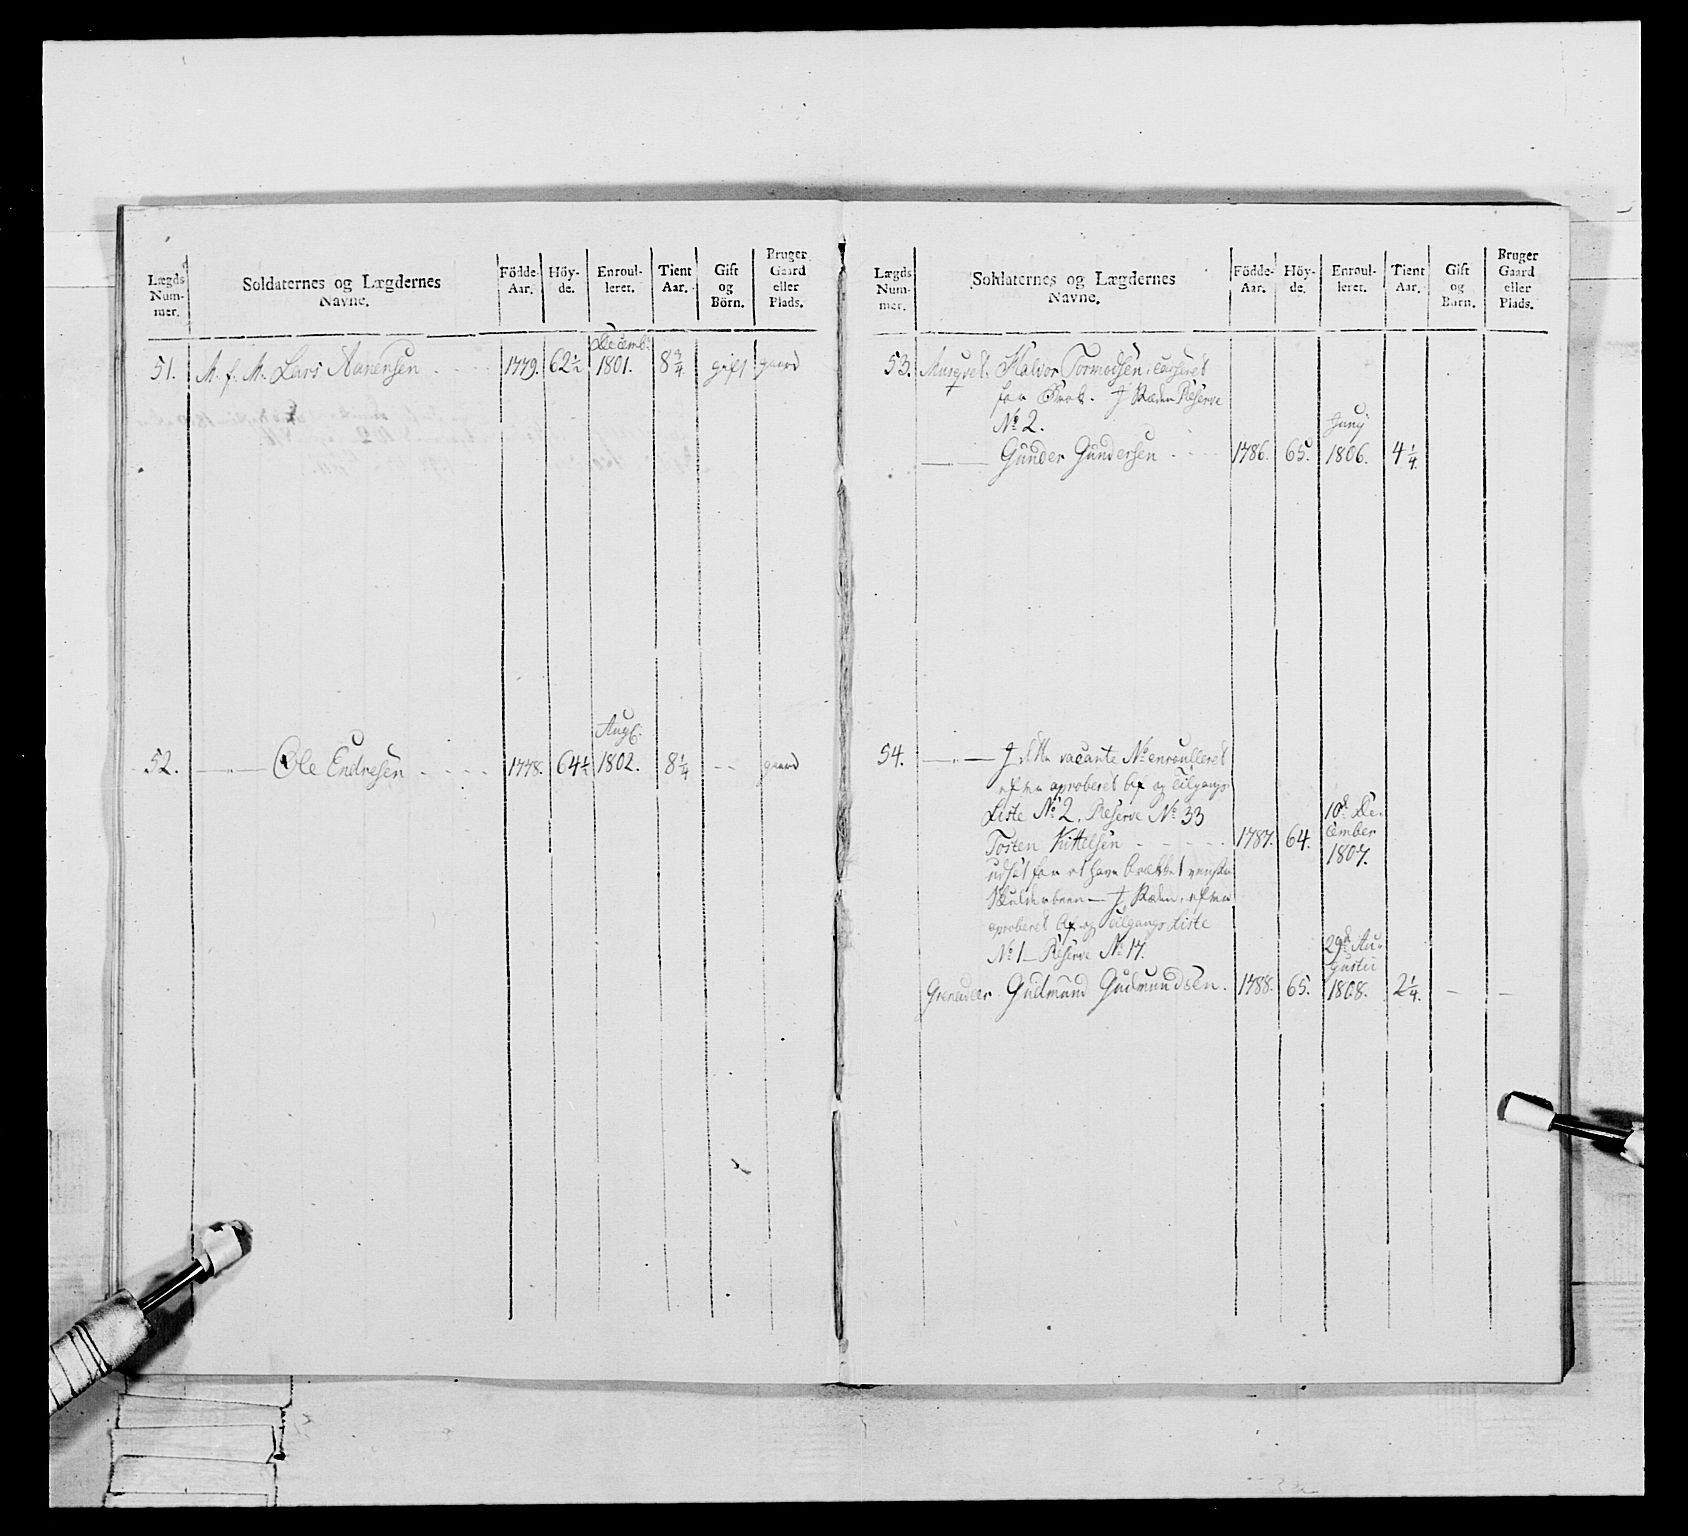 Lægds Num- mer.
Soldaternes og Lægdernes Navne.
Födde- Aar.
Höy- de.
Enroul- leret.
Tient Aar.
Gift og Börn.
Bruger Gaard eller Plads.
51. M. f. M. Lars Aanensen 1779. 62 1/2 Decemb: 1801. 8 3/4 gift gaard
52. Ole Endresen 1778. 64 1/2 Aug. 1802. 8 1/4 gaard
Lægds Num- mer.
Soldaternes og Lægdernes Navne.
Födde- Aar.
Höy- de.
Enroul- leret.
Tient Aar.
Gift og Börn.
Bruger Gaard eller Plads.
53. Musqvet. Halvor Tormodsen, casseret
for Brok. J Stæden Reserve
No 2.
Gunder Gundersen 1786. 65. Junÿ 1806. 4 1/4.
54. J dette vacante No enroulleret
efter aproberet Af og Tilgangs
Liste No 2, Reserve No 33
Tosten Kittelsen 1787. 64. 10de De- cember 1807.
udsat for at have brækket venstre
Skulderbeen – J Stæden, efter
aproberet Af og Tilgangs Liste
No 1 – Reserve No 17.
Grenadeer Gudmund Gudmundsen. 1788. 65. 29de Au- gustii 1808. 2 1/4. – –